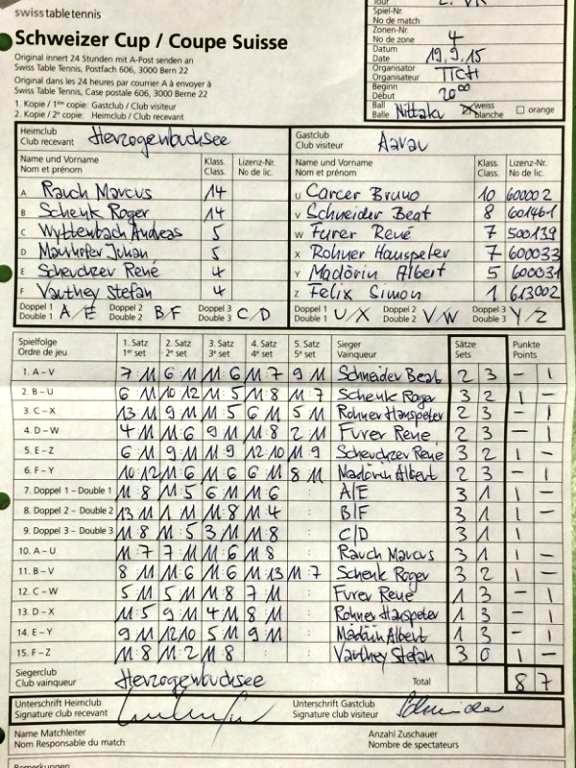 swisstabletennis
Schweizer Cup / Coupe Suisse
Original innert 24 Stunden mit A-Post senden an
Swiss Table Tennis, Postfach 606, 3000 Bern 22
Original dans les 24 heures par courrier A à envoyer à
Swiss Table Tennis, Case postale 606, 3000 Berne 22
1. Kopie / 1ère copie: Gastclub / Club visiteur
2. Kopie / 2e copie: Heimclub / Club recevant
Tour
Spiel-Nr.
No de match
Zonen-Nr.
No de zone 4
Datum
Date 19.9.15
Organisator
Organisateur TTCH
Beginn
Début 2000
Ball
Balle Nittaku weiss
blanche orange
Heimclub
Club recevant Herzogenbuchsee
Name und Vorname
Nom et prénom Klass.
Class. Lizenz-Nr.
No de lic.
A Rauch Marcus 14
B Schenk Roger 14
C Wyttenbach Andreas 5
D 5
E Scheidzer René 4
F Vauthey Stefan 4
Doppel 1
Double 1 A/E Doppel 2
Double 2 B/F Doppel 3
Double 3 C/D
Gastclub
Club visiteur Aarau
Name und Vorname
Nom et prénom Klass.
Class. Lizenz-Nr.
No de lic.
U Carcer Bruno 10 600002
V Schneider Beat 8 601461
W Furer René 7 500139
X Rohner Hauspeter 7 600033
Y Madörin Albert 5 600031
Z Felix Simon 1 613002
Doppel 1
Double 1 U/X Doppel 2
Double 2 V/W Doppel 3
Double 3 Y/Z
Spielfolge
Ordre de jeu 1. Satz
1er set 2. Satz
2e set 3. Satz
3e set 4. Satz
4e set 5. Satz
5e set Sieger
Vainqueur Sätze
Sets Punkte
Points
1. A – V 7 11 6 11 11 6 11 7 9 11 Schneider Beat 2 3 – 1
2. B – U 6 11 10 12 11 : 5 11 8 11 : 7 Schenk Roger 3 2 1 –
3. C – X 13 11 9 11 11 5 6 11 5 11 Rohner Hanspeter 2 3 – 1
4. D – W 4 11 11 6 9 11 11 8 2 11 Furer René 2 3 – 1
5. E – Z 6 11 9 11 11 9 12 10 11 9 Scheidzer René 3 2 1 –
6. F – Y 10 12 11 6 11 6 6 11 8 11 Madörin Albert 2 3 – 1
7. Doppel 1 – Double 1 11 8 11 : 5 6 11 11 6 : A/E 3 1 1 –
8. Doppel 2 – Double 2 13 11 1 11 11 8 11 4 : B/F 3 1 1 –
9. Doppel 3 – Double 3 11 8 11 : 5 3 11 11 8 : C/D 3 1 1
10. A – U 11 : 7 7 11 11 6 11 8 : Rauch Marcus 3 1 1 –
11. B – V 8 11 11 6 11 6 11 13 11 7 Schenk Roger 3 2 1 –
12. C – W 5 11 5 11 11 8 7 11 : Furer René 1 3 – 1
13. D – X 11 : 5 9 11 4 11 8 11 : Rohner Hanspeter 1 3 – 1
14. E – Y 9 11 12 10 5 11 9 11 : Madörin Albert 1 3 – 1
15. F – Z 11 8 11 : 2 11 8 : : Vauthey Stefan 3 0 1 –
Siegerclub
Club vainqueur Herzogenbuchsee Total 8 7
Unterschrift Heimclub
Signature club recevant
Unterschrift Gastclub
Signature club visiteur Schneider
Name Matchleiter
Nom Responsable du match
Anzahl Zuschauer
Nombre de spectateurs
Bemerkungen